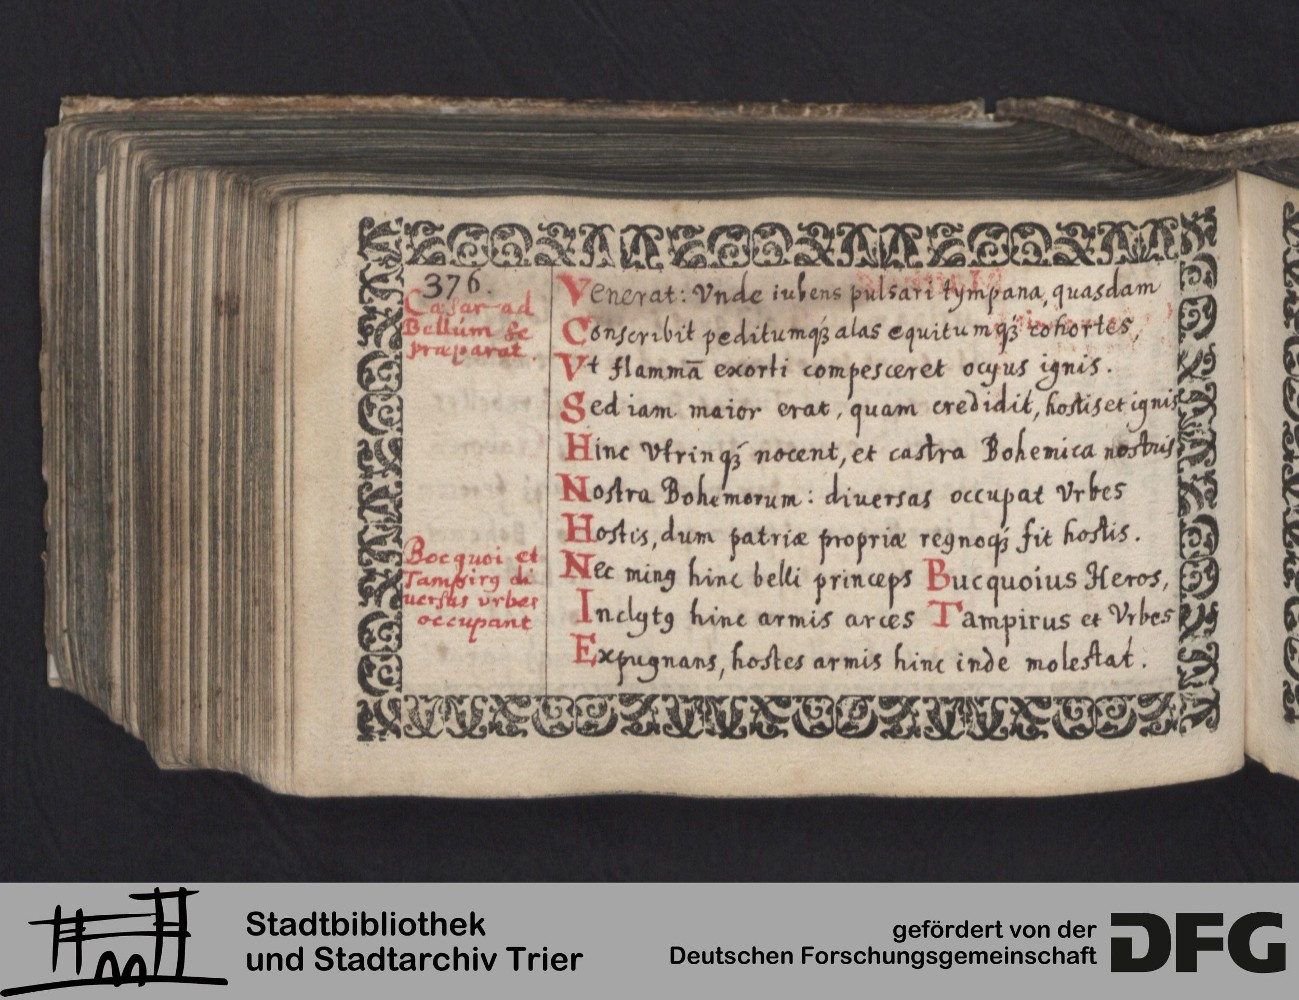 376.
Cæsar ad
Bellum se
præparat.
Venerat: Vnde iubens pulsari tympana, quasdam
Conscribit peditumqꝫ alas equitumqꝫ cohortes,
Vt flammā exorti compesceret ocyus ignis.
Sed iam maior erat, quam credidit, hostis et ignis
Hinc Vtrinqꝫ nocent, et castra Bohemica nostris
Nostra Bohemorum: diuersas occupat Vrbes
Hostis, dum patriæ propriæ regnoqꝫ fit hostis.
Bocquoi et
Tampirꝰ di
uersas vrbes
occupant
Nec minꝰ hinc belli princeps Bucquoius Heros,
Inclytꝰ hinc armis arces Tampirus et Vrbes
Expugnans, hostes armis hinc inde molestat.
Stadtbibliothek
und Stadtarchiv Trier
gefördert von der
Deutschen Forschungsgemeinschaft
DFG